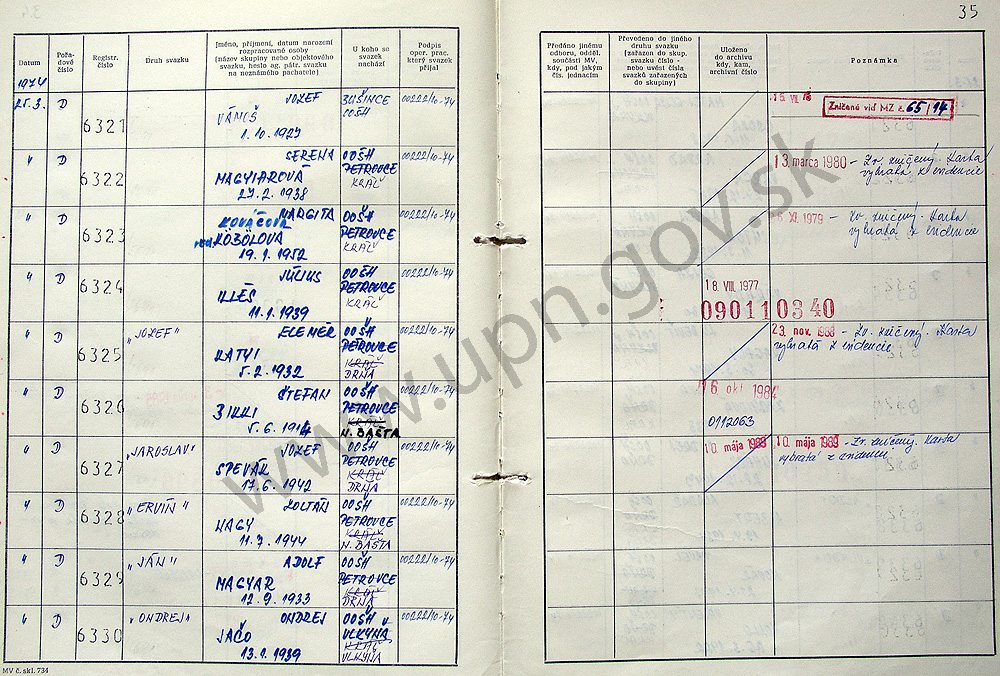 35
Datum
Pořa-
dové
číslo
Registr.
číslo
Druh svazku
Jméno, příjmení, datum narození
rozpracované osoby
(název skupiny nebo objektového
svazku, heslo ag. pátr. svazku
na neznámého pachatele)
U koho se
svazek
nachází
Podpis
oper. prac.
který svazek
přijal
Předáno jinému
odboru, odděl.
součásti MV,
kdy, pod jakým
čís. jednacím
Převedeno do jiného
druhu svazku
(zařazen do skup.
svazku číslo -
nebo uvési čísla
svazků zařazených
do skupiny)
Uloženo
do archivu
kdy, kam,
archivní číslo
Poznámka
1974
25.3. D 6321 JOZEF
VÁMOŠ
1.10.1927
00222/10-74
Zničené viď MZ č. 65/74
" D 6322 SERENA
MAGYIAROVÁ
27.2.1938
OOŠH
PETROVCE
KRÁĽ
00222/10-74
13 marca 1980 - Zv. zničený. Karta
vybratá z evidencie
" D 6323 MARGITA
KOVÁČOVÁ
KÖBÖLOVÁ
19.1.1952
OOŠH
PETROVCE
KRÁĽ
00222/10-74
XI. 1979 - Zv. zničený. Karta
vybratá z evidencie
" D 6324 JÚLIUS
ILLÉŠ
11.1.1939
OOŠH
PETROVCE
KRÁĽ
00222/10-74
18 VIII. 1977
090110340
" D 6325 „JOZEF" ELEMÉR
KATYI
5.2.1932
OOŠH
PETROVCE
KRÁĽ
DRŇA
00222/10-74
23. nov. 1988 - Zv. zničený. Karta
vybratá z evidencie
" D 6326 ŠTEFAN
5.6.1914
OOŠH
PETROVCE
KRÁĽ
H. BAŠTA
00222/10-74
6 okt 1984
0112063
" D 6327 „JAROSLAV" JOZEF
SPEVÁK
17.6.1942
OOŠH
PETROVCE
KRÁĽ
DRŇA
00222/10-74
10. mája 1983 10. mája 1983 - Zv. zničený. Karta
vybratá z evidencie
" D 6328 „ERVÍN" ZOLTÁN
NAGY
11.7.1944
OOŠH
PETROVCE
KRÁĽ
H. BAŠTA
00222/10-74
" D 6329 „JÁN" ADOLF
MAGYAR
12.9.1933
OOŠH
PETROVCE
KRÁĽ
DRŇA
00222/10-74
" D 6330 „ONDREJ" ONDREJ
JAČO
13.1.1939
OOŠH
VLKYŇA
KRÁĽ
VLKYŇA
00222/10-74
MV č. skl. 734
www.upn.gov.sk